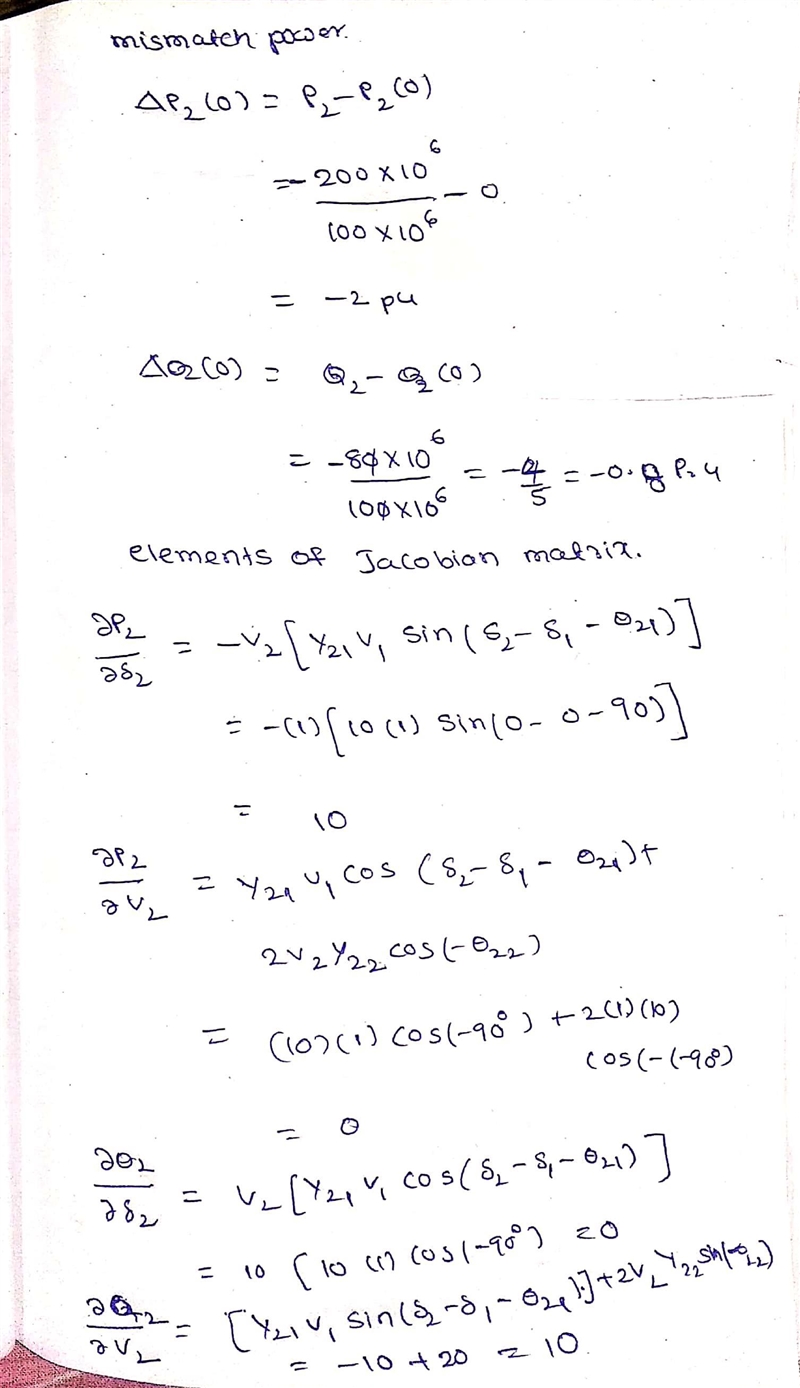 mismatch power.
ΔP₂(0) = P₂ - P₂(0)
= -200 × 10⁶ / 100 × 10⁶ - 0
= -2 pu
ΔQ2(0) = Q₂ - Q₂(0)
= -80 × 10⁶ / 100 × 10⁶ = -4/5 = -0.8 P.u
elements of Jacobian matrix.
∂P₂/∂δ₂ = -V₂[Y₂₁V₁ sin(δ₂ - δ₁ - θ₂₁)]
= -(1)[10(1) sin(0 - 0 - 90)]
= 10
∂P₂/∂V₂ = Y₂₁V₁ cos(δ₂ - δ₁ - θ₂₁) +
2V₂Y₂₂ cos(-θ₂₂)
= (10)(1) cos(-90°) + 2(1)(10)
cos(-(-90)
= 0
∂Q₂/∂δ₂ = V₂[Y₂₁V₁ cos(δ₂ - δ₁ - θ₂₁)]
= 10 [10 (1) cos(-90°) = 0
∂Q₂/∂V₂ = [Y₂₁V₁ sin(δ₂ - δ₁ - θ₂₁)] + 2V₂Y₂₂ sin(-θ₂₂)
= -10 + 20 = 10